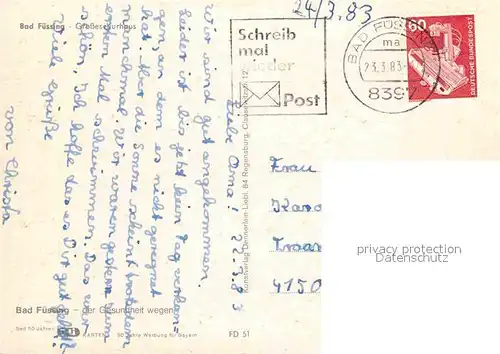 Bad Füssing - Großes Kurhaus
24/3.83
Schreib
mal
wieder
Post
BAD FÜSSING
ma
23.3.83-
8397
60
DEUTSCHE BUNDESPOST
Liebe Oma! 22.3.83
Wir sind gut angekommen.
Leider ist bis jetzt kein Tag vergan-
gen, an dem es nicht geregnet
hat. Aber die Sonne scheint trotzdem
manchmal. Wir waren gestern zum
ersten Mal schwimmen. Das war
schön. Ich hoffe das es Dir gut geht!
Viele Grüße
von Christa
Frau
4150
Bad Füssing - der Gesundheit wegen
Seit 50 Jahren KARTEN 50 Jahre Werbung für Bayern
FD 51
Kunstverlag Dennerlein Liebl, 84 Regensburg,
privacy protection
Datenschutz